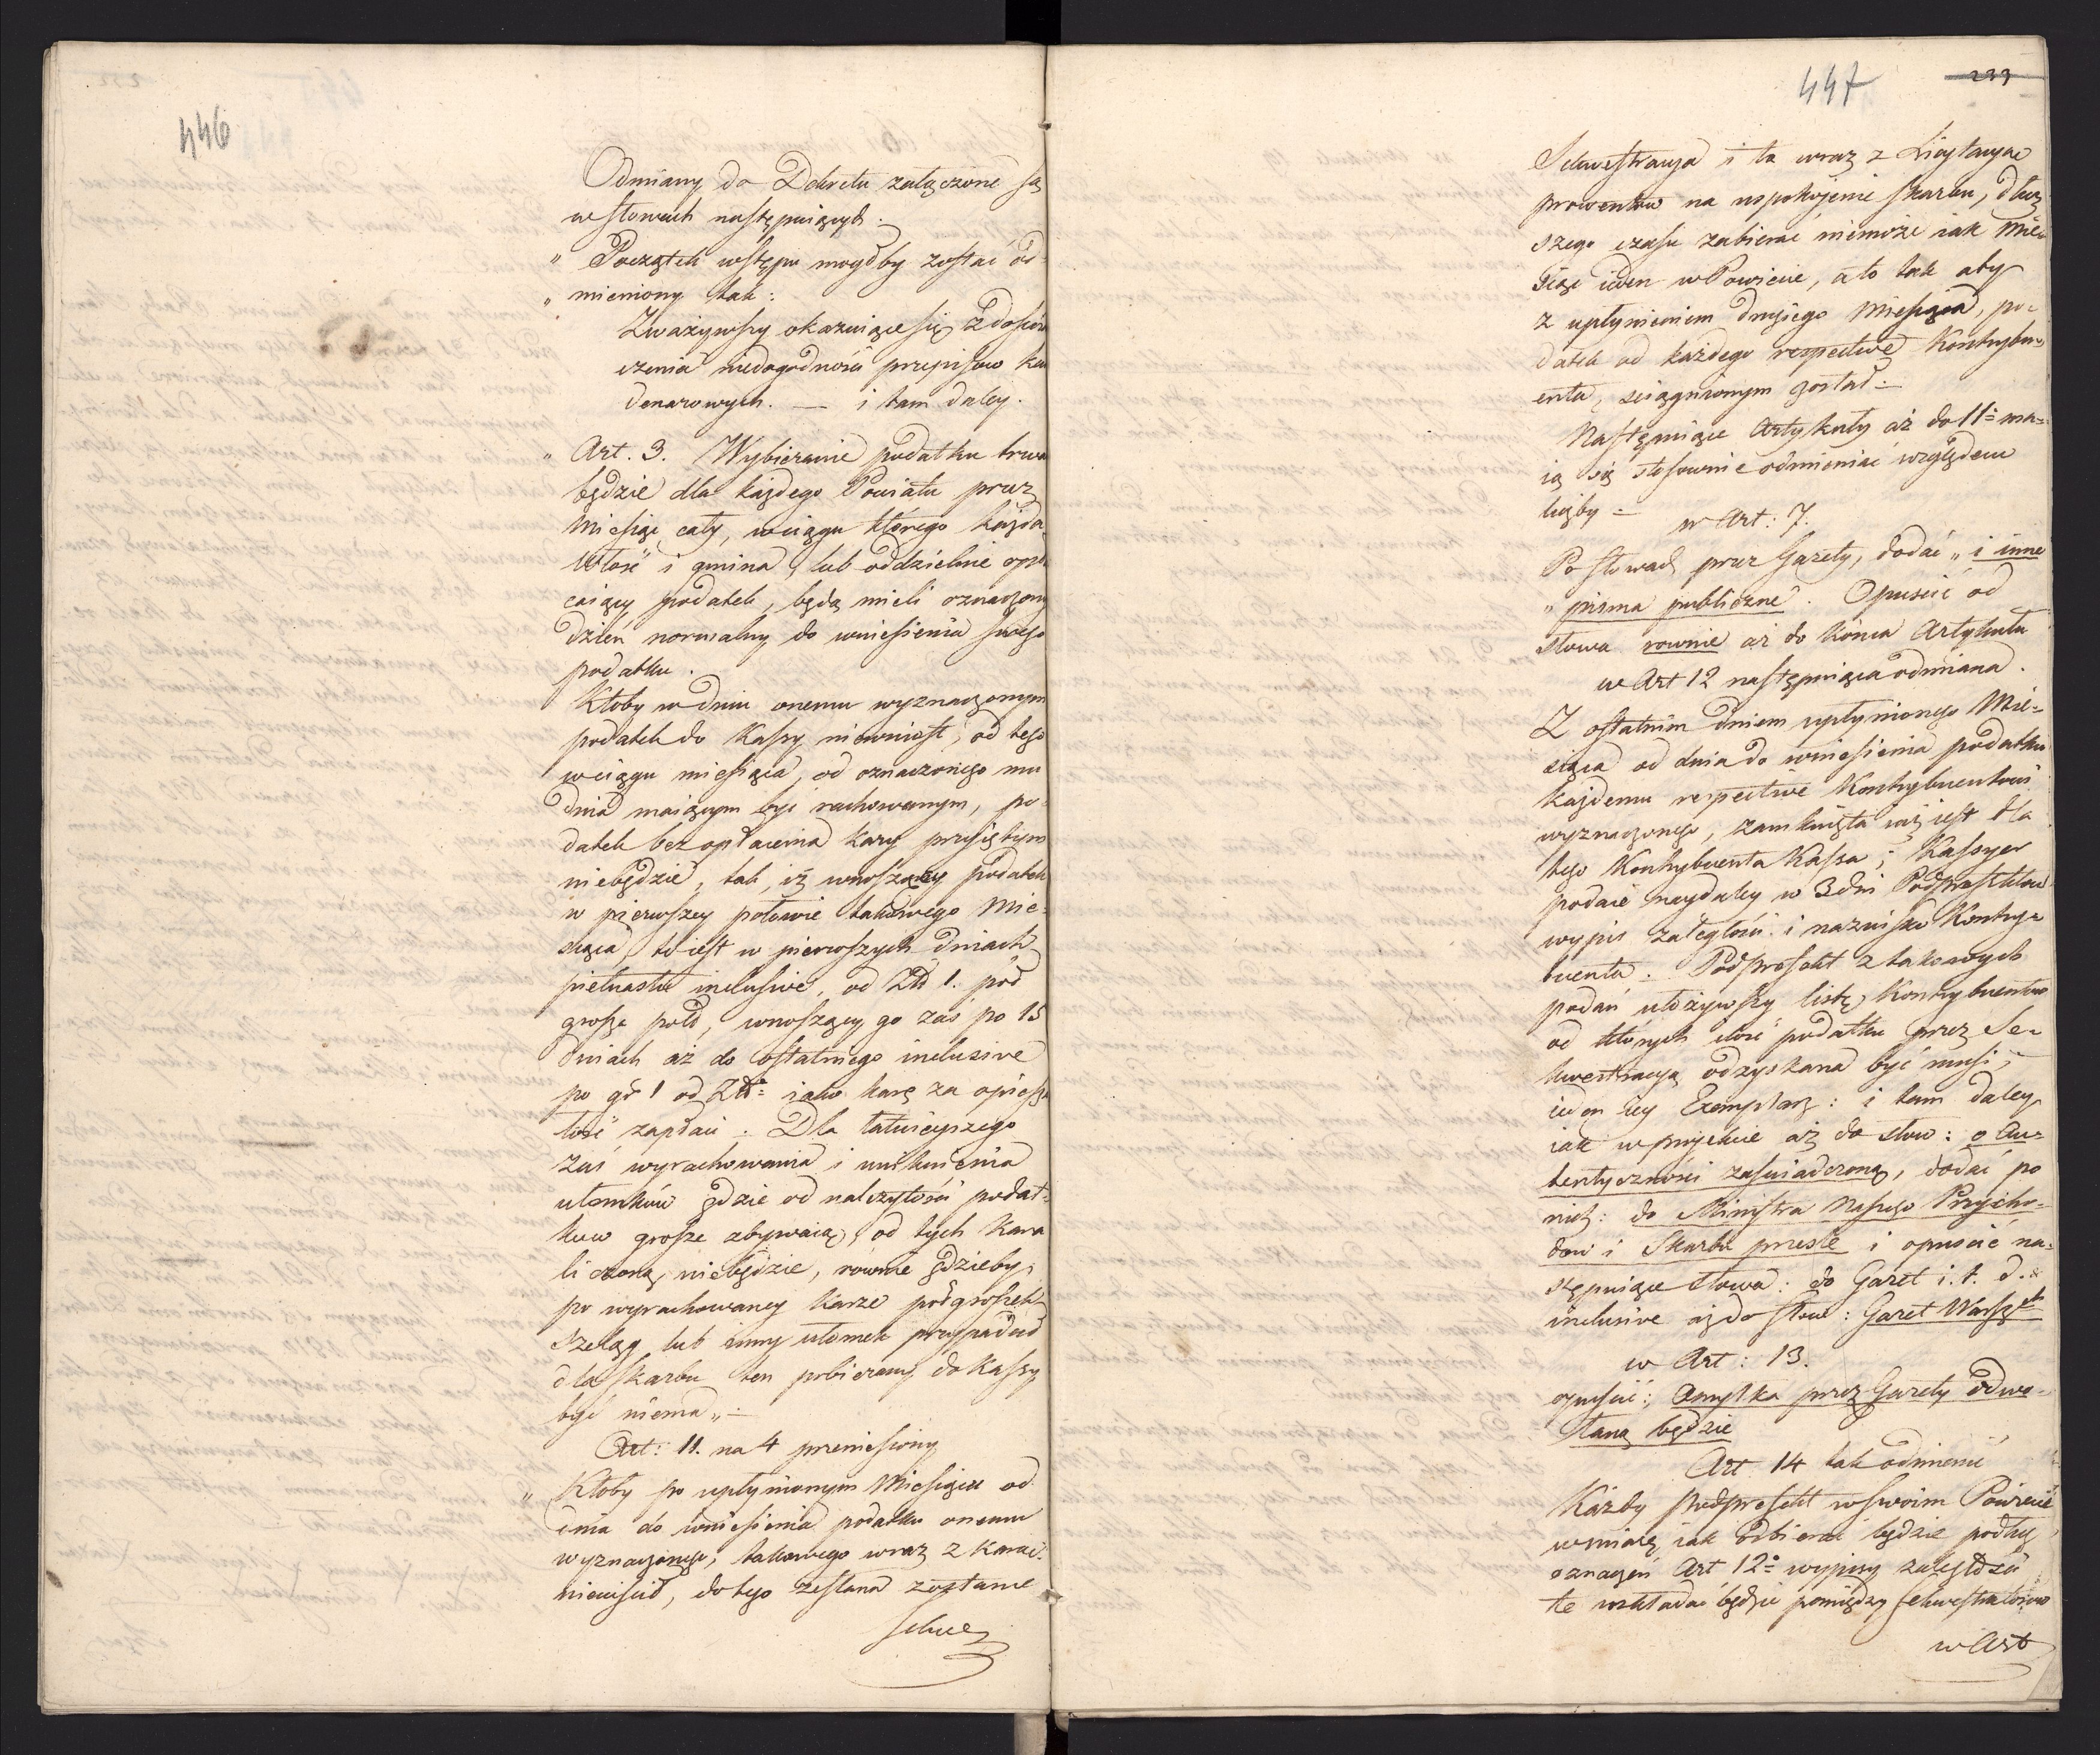 446
Odmiany do Dekretu załączone są
w słowach następuiących:
„ Początek wstępu mogłby zostać od=
„ mieniony tak:
Zważywszy okazuiące się z doświad
czenia niedogodności przepisow ka
denarowych. — i tam daley.
„ Art. 3. Wybieranie podatku trwa
będzie dla każdego Powiatu przez
Miesiąc cały, w ciągu którego każda
Włość i gmina, lub oddzielnie opła
caiący podatek, będą mieli oznaczony
dzień normalny do wniesienia swego
podatku.
Ktoby w dniu onemu wyznaczonym
podatek do Kassy niewniosł, od tego
w ciągu miesiąca, od oznaczonego mu
dnia maiącym być rachowanym, po=
datek bez opłacenia kary przyiętym
niebędzie, tak, iż wnoszący podatek
w pierwszey połowie takowego Mie=
siąca, to iest w pierwszych dniach
pietnastu inclusive, od Zł 1. poł
grosza pols, wnoszący go zaś po 15
dniach aż do ostatniego inclusive
po gr 1 od Zło= iako karę za opiesza
łość zapłaci. Dla łatwieyszego
zaś wyrachowania i uniknienia
ułomków gdzie od należytości podat=
kow grosze zbywaią, od tych kara
liczoną niebędzie, równie gdzieby
po wyrachowaney karze połgroszek
szeląg lub inny ułomek przypadał
dla skarbu ten pobierany do Kassy
być niema„ —
Art: 11. na 4 przeniesiony
„ Ktoby po upłynionym Miesiącu od
dnia do wniesienia podatku onemu
wyznaczonego, takowego wraz z karą
nieuiścił, do tego zesłana zostanie
Sekwe
447
233
Sekwestracya i ta wraz z Licytacyą
prowentow na uspokojenie skarbu, dłuż
szego czasu zabierać niemoże iak Mie=
siąc ieden w Powiecie, a to tak aby
z upłynieniem drugiego Miesiąca, po=
datek od każdego respective Kontrybu=
enta, sciągnionym został —
Następuiące Artykuły aż do 11= ma=
ią się stosownie odmieniać względem
liczby —
w Art: 7.
Po słowach przez Gazety, dodać „ i inne
„ pisma publiczne. Opuścić od
słowa rownie aż do końca Artykułu
w Art 12 następuiąca odmiana.
Z ostatnim dniem upłynionego Mie=
siąca od dnia do wniesienia podatku
każdemu respective Kontrybuentowi
wyznaczonego, zamknięta iuż iest dla
tego Kontrybuenta Kassa; Kassyer
podaie naydaley w 3 dni Podprefektowi
wypis zaległości i nazwisko Kontry=
buenta. Podprefekt z takowych
podań ułożywszy listę Kontrybuentow
od których ilość podatku przez Se=
kwestracyą odzyskana być musi,
ieden iey Exemplarz: i tam daley
iak w projekcie aż do słow: o Au=
tentyczności zaświadczoną, dodać po
nich: do Ministra Naszego Przycho=
dow i Skarbu prześle i opuścić na=
stępuiące słowa: do Gazet i. t. d.
inclusive aż do słow: Gazet Warsz
w Art: 13.
opuścić: omyłka przez Gazety odwo=
łaną będzie
Art 14 tak odmienić
Każdy Podprefekt w swoim Powiecie
w miarę iak odbierać będzie podług
oznaczeń Art 12= wypisy zaległości
te rozkładać będzie pomiędzy sekwestratorow
w Art